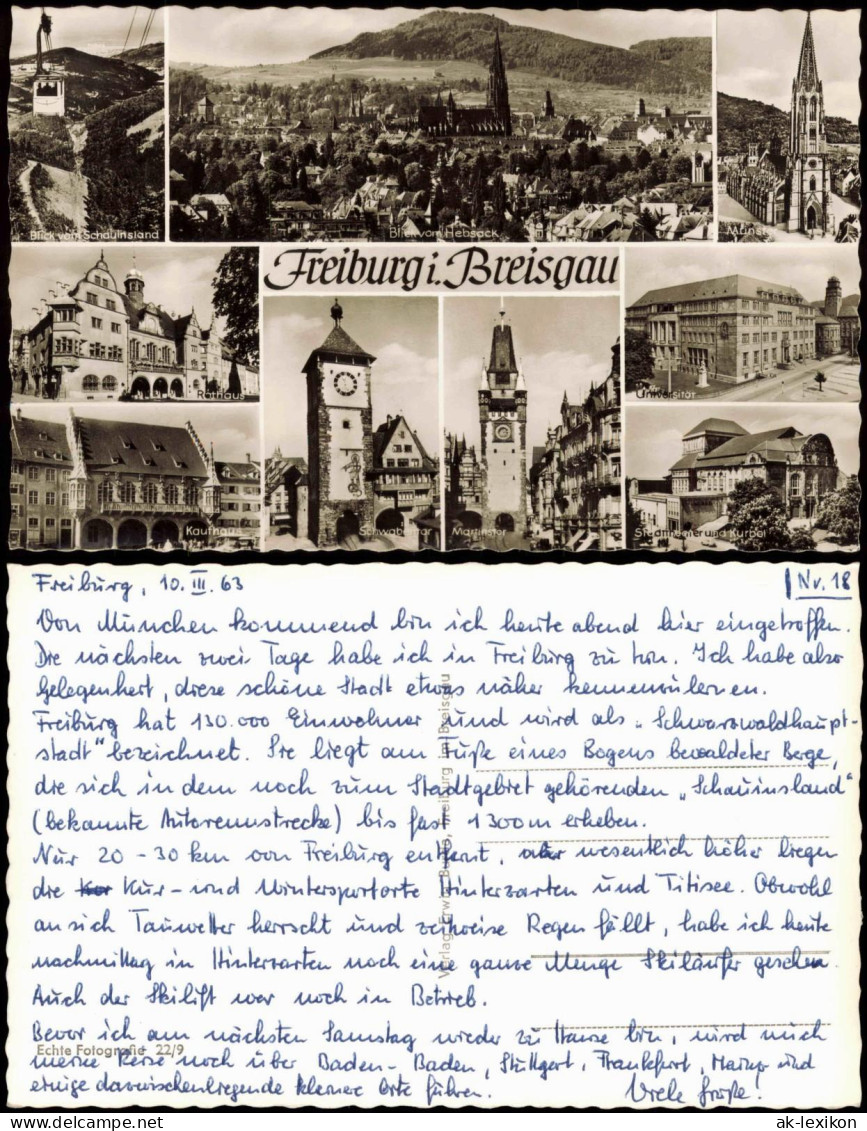 Blick vom Schauinsland
Blick vom Hebsack
Münster
Freiburg i. Breisgau
Rathaus
Universität
Kaufhaus
Schwabentor
Martinstor
Stadttheater und Kurbel
Freiburg, 10. III. 63
Nr. 18
Von München kommend bin ich heute abend hier eingetroffen.
Die nächsten zwei Tage habe ich in Freiburg zu tun. Ich habe also
Gelegenheit, diese schöne Stadt etwas näher kennenzulernen.
Freiburg hat 130.000 Einwohner und wird als „Schwarzwaldhaupt-
stadt" bezeichnet. Sie liegt am Fuße eines Bogens bewaldeter Berge,
die sich in dem noch zum Stadtgebiet gehörenden „Schauinsland"
(bekannte Autorennstrecke) bis fast 1300 m erheben.
Nur 20 - 30 km von Freiburg entfernt, aber wesentlich höher liegen
die Kur- und Wintersportorte Hinterzarten und Titisee. Obwohl
an sich Tauwetter herrscht und zeitweise Regen fällt, habe ich heute
nachmittag in Hinterzarten noch eine ganze Menge Skiläufer gesehen.
Auch der Skilift war noch in Betrieb.
Bevor ich am nächsten Samstag wieder zu Hause bin, wird mich
meine Reise noch über Baden-Baden, Stuttgart, Frankfurt, Mainz und
einige dazwischenliegende kleinere Orte führen.
Viele Grüße.
Echte Fotografie 22/9
Verlag Erwin Burda, Freiburg im Breisgau
ak-lexikon